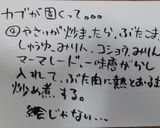 カブが固くって。。。
④やさいが炒まったら、ぶたこま
しょうゆ、みりん、コショウ、みりん
マーマレード、一味唐がらし
入れて、ぶた肉に熱とおるまで
炒め煮する。
絵じゃない…